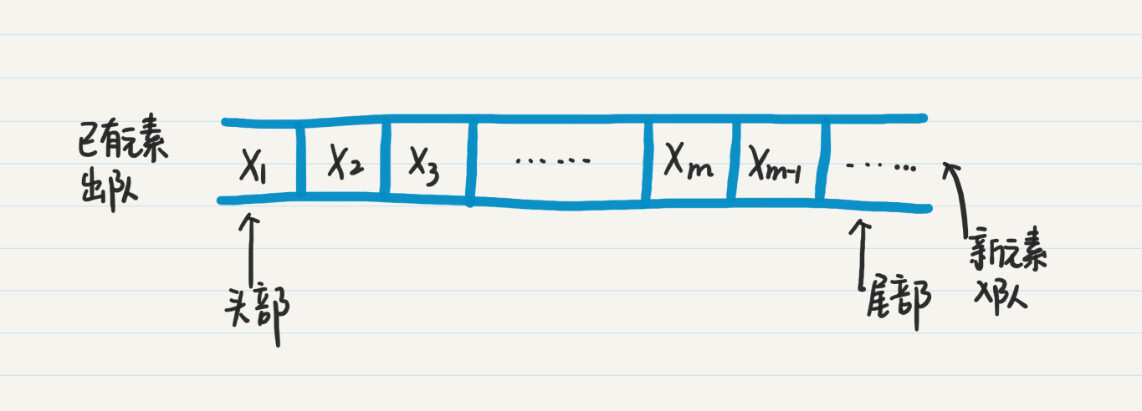 已有元素
出队
X1
X2
X3
······
Xm
Xm-1
······
头部
尾部
新元素
入队